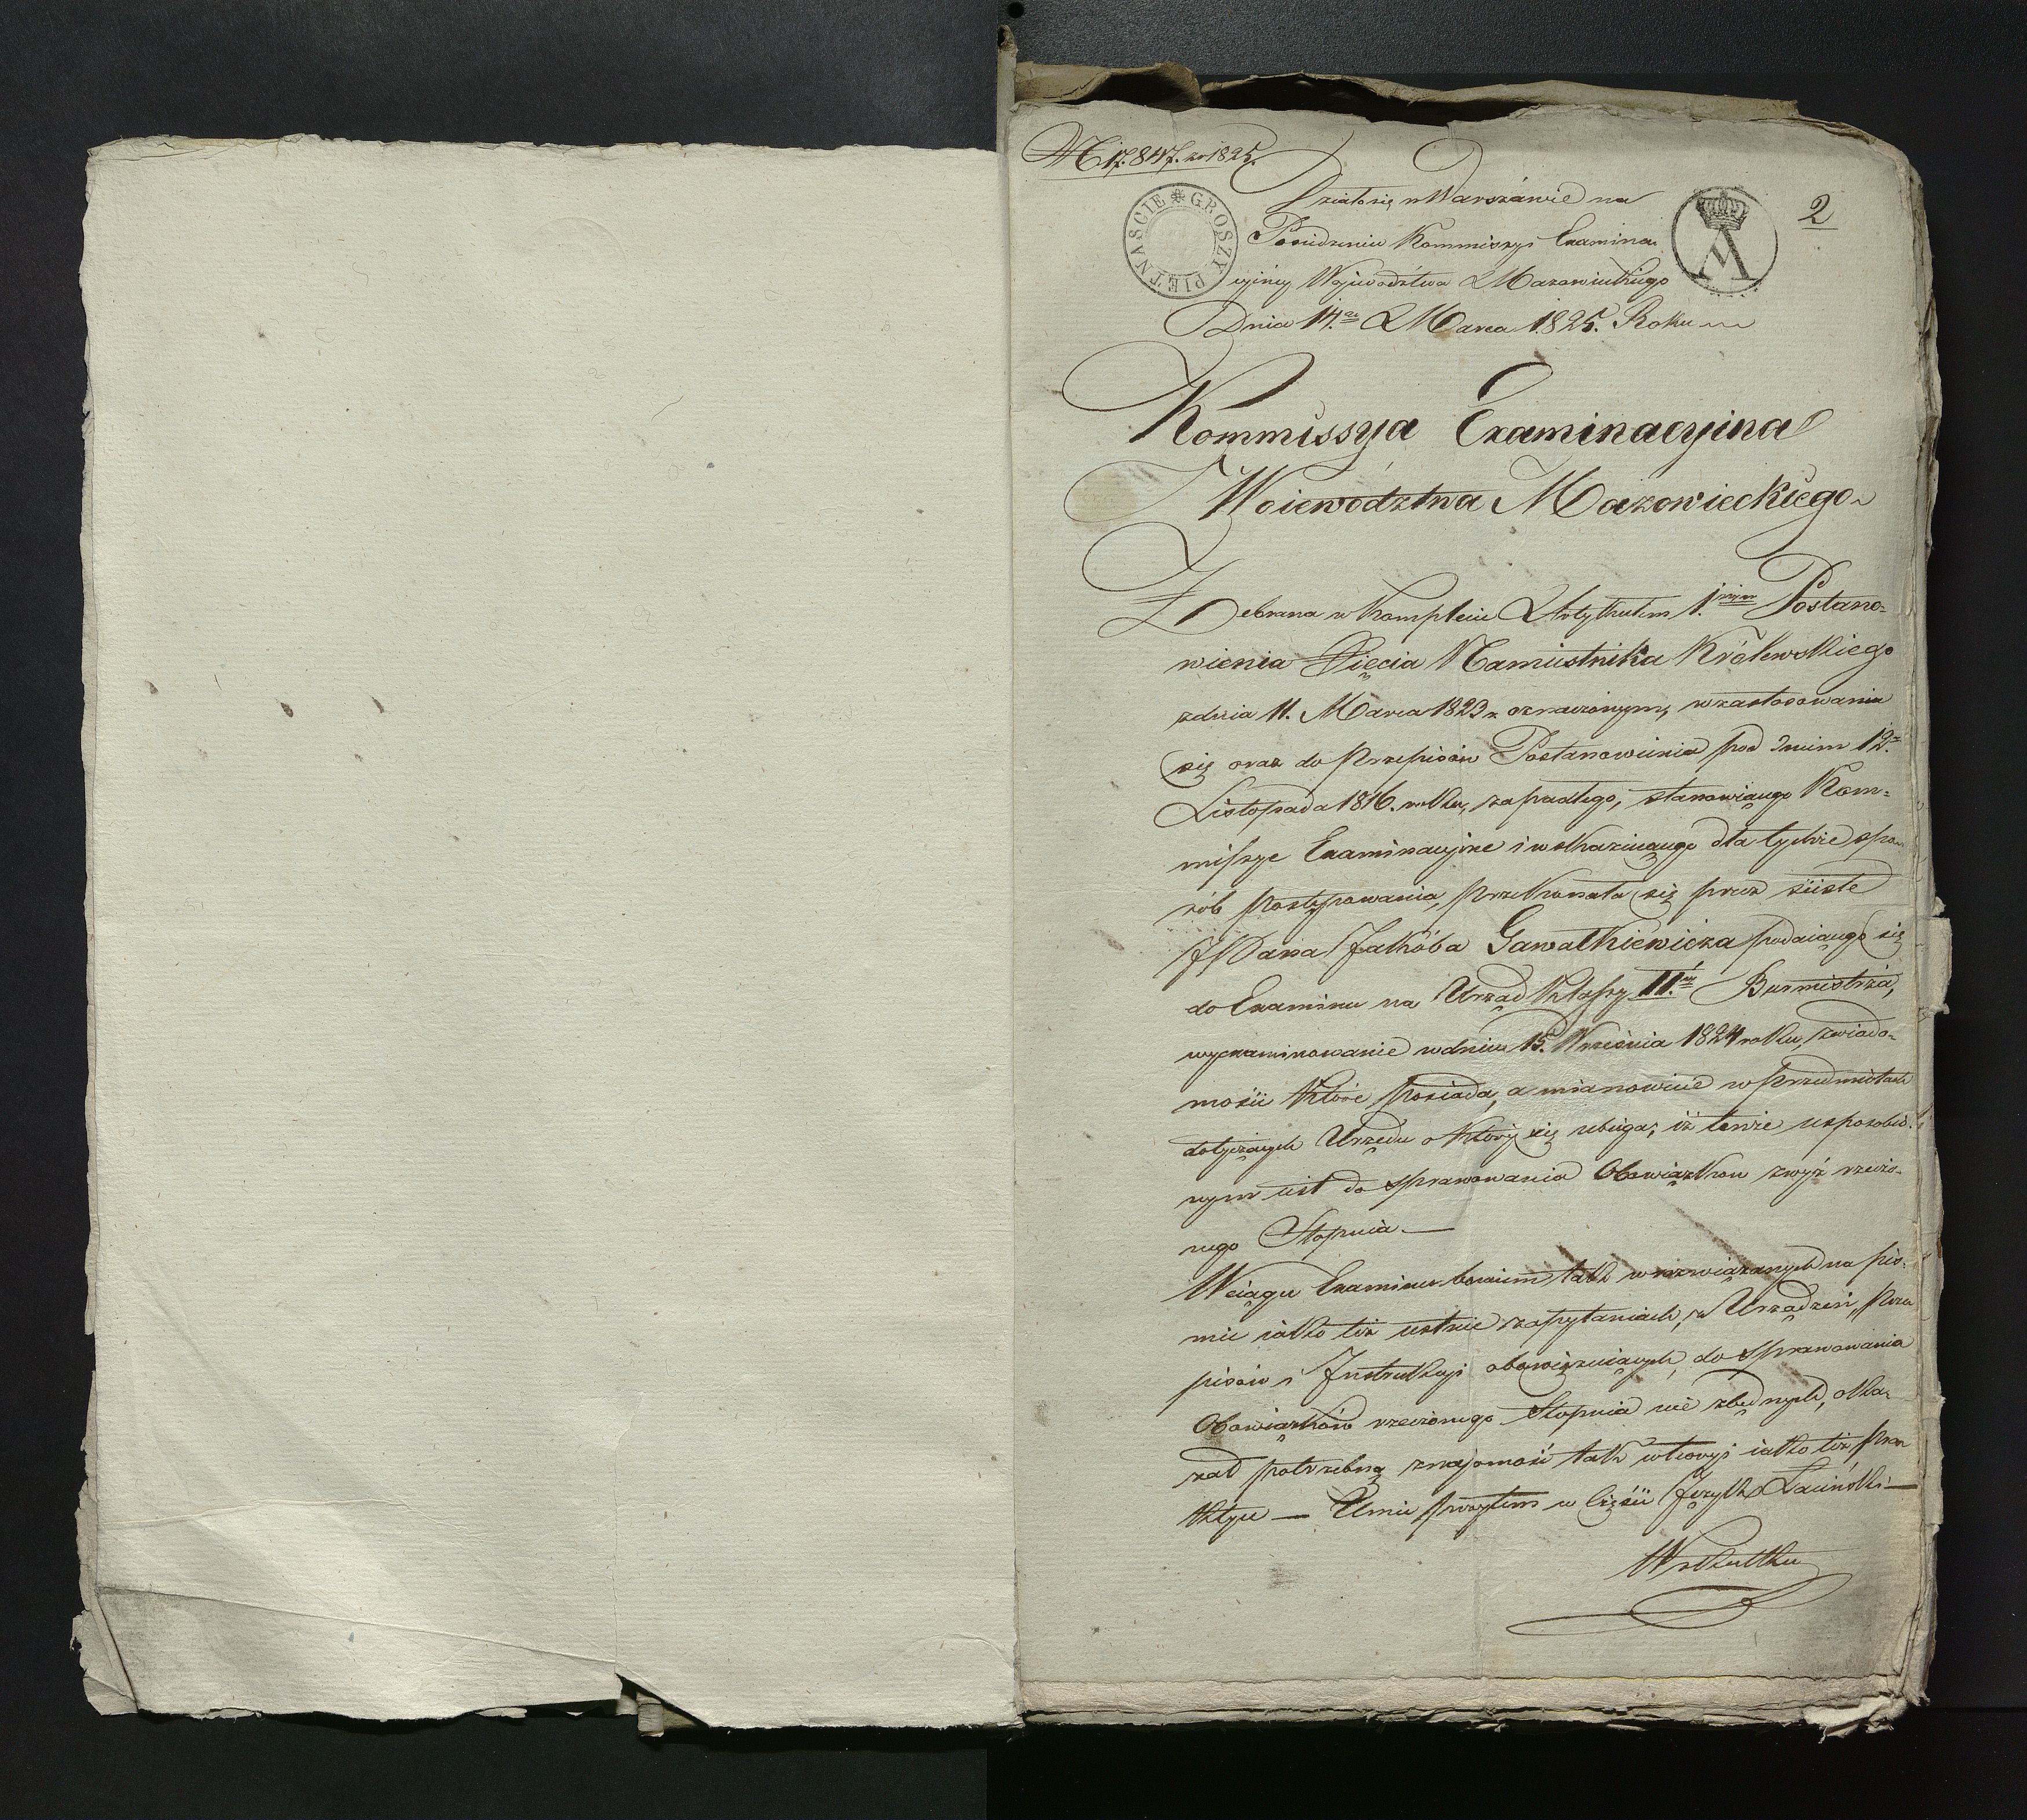 N 17.847. ar 1825.
Działo się w Warszawie na
2
Posiedzeniu Kommissyi Examina
cyiney Woiewództwa Mazowieckiego
Dnia 14.go Marca 1825. Roku
GROSZY PIĘTNAŚCIE
Kommissya Examinacyina
Woiewództwa Mazowieckiego
Zebrana w Komplecie Artykułem 1.wszym Postano-
wienia Xięcia Namiestnika Królewskiego
z dnia 11. Marca 1823 r oznaczonym, w zastosowaniu
się oraz do Przepisów Postanowienia pod dniem 12.
Listopada 1816. roku, zapadłego, stanowiącego Kom-
missye Examinacyine i wskazuiącego dla tychże spo-
sób postępowania, przekonała się przez ściste
JPana Jakóba Gawałkiewicza podaiącego się
do Examinu na Urząd Klassy II.éy Burmistrza,
wyexaminowanie w dniu 15. Września 1824 roku, z wiado-
mości które posiada, a mianowicie w przedmiotach
dotyczących Urzędu o który się ubiega, iż tenże usposobio-
nym iest do sprawowania Obowiązkow zwyż rzeczo-
nego Stopnia —
W ciągu Examinu bowiem tak w rozwiązanych na piś-
mie iako też ustnie zapytaniach, z Urządzeń, Prze
pisów i Instrukcyi obowiązuiących, do sprawowania
Obowiązków rzeczonego Stopnia nie zbędnych, oka-
zał potrzebną znajomość tak w teoryi iako też prak
tyce — Umie przytem w części Język Łaciński —
W skutku